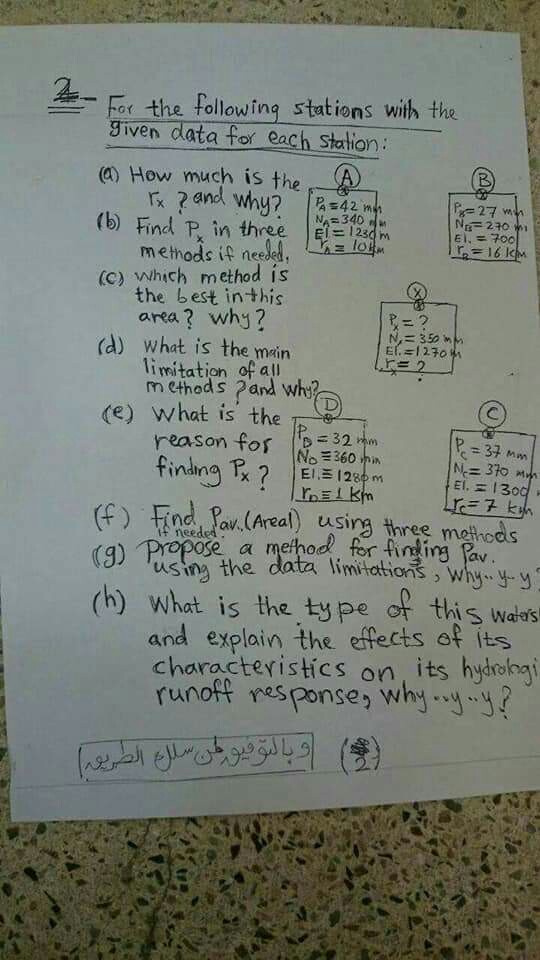 2- For the following stations with the
given data for each station:
(a) How much is the
rx ? and why?
(b) Find Px in three
methods if needed.
(c) which method is
the best in this
area? why?
(d) what is the main
limitation of all
methods ? and why?
(e) what is the
reason for
finding Px ?
A
PA = 42 mm
NA = 340 mm
El. = 1230 m
rA = 10 km
B
PB = 27 mm
NB = 270 m
El. = 700
rB = 16 km
X
Px = ?
Nx = 350 mm
El. = 1270 m
rx = ?
D
PD = 32 mm
ND = 360 mm
El. = 1280 m
rD = 1 km
C
PC = 37 mm
NC = 370 mm
El. = 1300
rC = 7 km
(f) Find Pav. (Areal) using three methods
if needed.
(g) Propose a method for finding Pav.
using the data limitations, why..y..y?
(h) what is the type of this waters
and explain the effects of its
characteristics on its hydrologi
runoff response, why..y..y?
وبالتوفيق لمن سلك الطريق
(2)